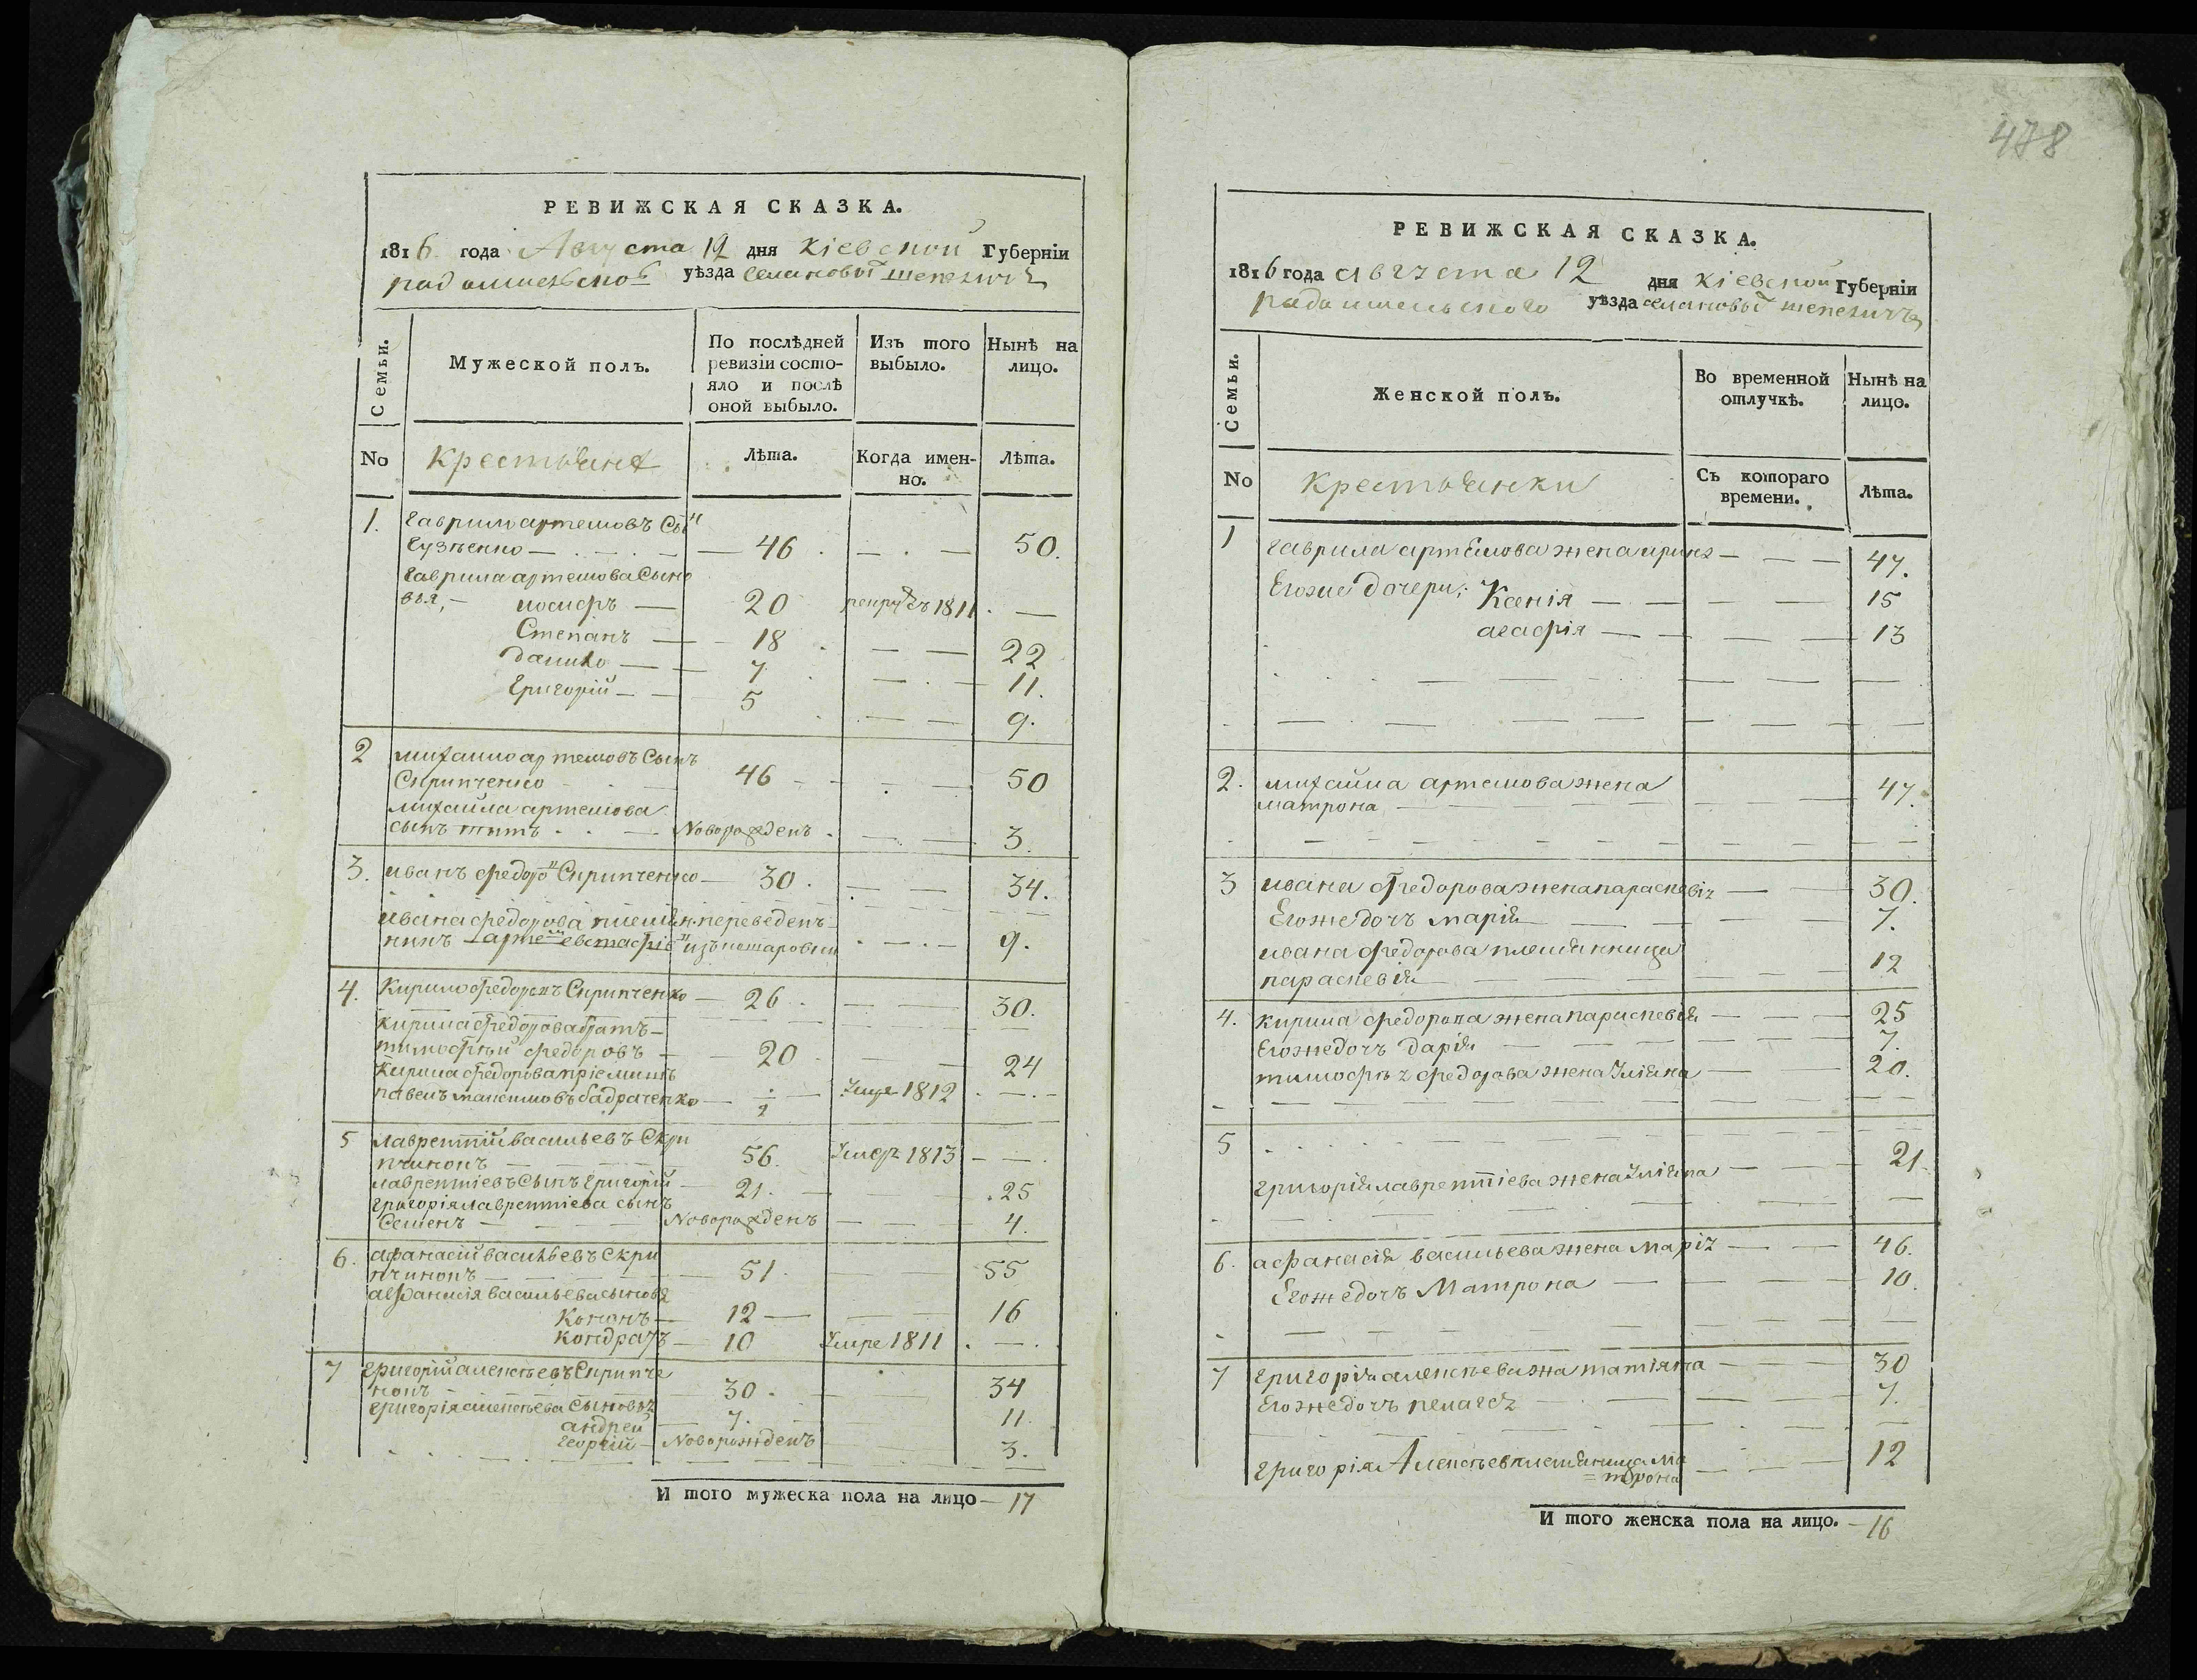 478
РЕВИЖСКАЯ СКАЗКА.
1816 года Августа 12 дня Кіевской Губерніи
радомисльской уѣзда селановый шепеличъ
Семьи.
Мужеской полъ.
По послѣдней ревизіи состояло и послѣ оной выбыло.
Изъ того выбыло.
Нынѣ на лицо.
No
Крестьяне
Лѣта.
Когда именно.
Лѣта.
1. Гаврило артемовъ Сынъ
Гузненко — 46 — 50.
Гаврила артемова Сыно
вья, — иосифъ — 20 рекрутъ 1811. —
Степанъ — 18 — 22
данило — 7 — 11.
Григорій — 5 — 9.
2 михаило артемовъ Сынъ
Скрипченко 46 — 50
михаила артемова
сынъ титъ — Новорожденъ — 3.
3. иванъ федоровъ Скрипченко — 30. — 34.
ивана федорова племян. переведенъ
никъ евстафій изъ 9.
4. Кирило федоровъ Скрипченко — 26. — 30.
кирила федорова братъ —
тимофѣй федоровъ — 20 — 24
Кирила федорова пріемишъ
павелъ максимовъ бадраченко — 1 Умре 1812 —
5 лаврентій васильевъ Скри
пчинокъ — 56. Умер 1813 —
лаврентіевъ Сынъ Григорій — 21. — 25
григорія лаврентіева сынъ
Семенъ — Новорожденъ — 4.
6. афанасій васильевъ Скри
пчинокъ — 51. — 55
афанасія васильева сыновя
Кононъ — 12 — 16
Кондратъ — 10 Умре 1811 —
7 григорій алексѣевъ Скрипче
нокъ — 30. — 34
григорія алексѣева Сыновья
андрей — 7. — 11.
георгій — Новорожденъ — 3.
И того мужеска пола на лицо — 17
РЕВИЖСКАЯ СКАЗКА.
1816 года августа 12 дня Кіевской Губерніи
радомисльского уѣзда селановый шепеличъ
Семьи.
Женской полъ.
Во временной отлучкѣ.
Нынѣ на лицо.
No
Крестьянки
Съ котораго времени.
Лѣта.
1 гаврила артемова жена ирина — 47.
Егоже дочери; Ксенія — 15
агафія — 13
2. михаила артемова жена
матрона — 47.
3 ивана федорова жена параскевія — 30.
Егоже дочъ марія — 7.
ивана федорова племянница
параскевія — 12
4. кирила федорова жена параскевія — 25
Егоже дочъ дарія — 7.
тимофѣя федорова жена Уліяна — 20.
5
григорія лаврентіева жена Уліяна — 21.
6. афанасія васильева жена марія — 46.
Егоже дочъ Матрона — 10.
7 григорія алексѣева жна татіяна — 30
Егоже дочъ пелагея — 7.
григорія Алексѣев племяница ма
=трона — 12
И того женска пола на лицо. — 16